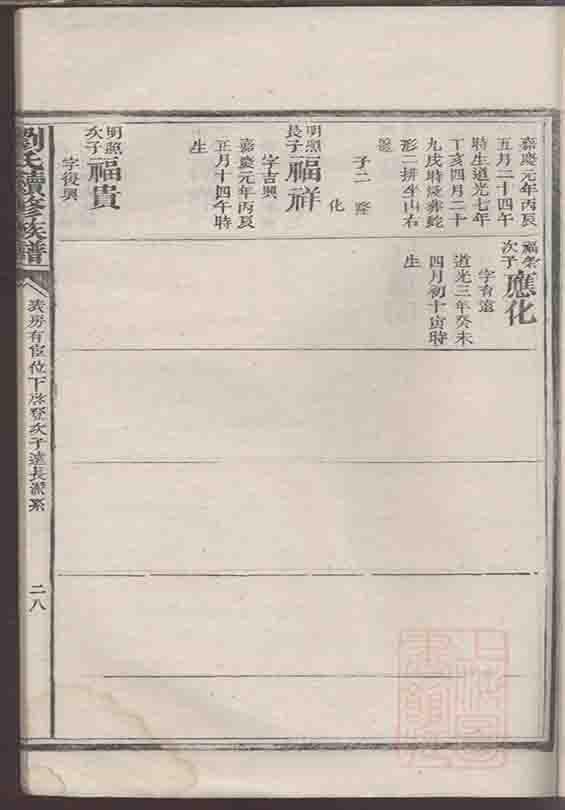 嘉慶元年丙辰
五月二十四午
時生道光七年
丁亥四月二十
九戌時歿葬蛇
形二排坐山右
子二
應
化
明照
長子
福祥
字吉興
嘉慶元年丙辰
正月十四午時
生
明照
次子
福貴
字復興
福榮
次子
應化
字有遠
道光三年癸未
四月初十寅時
生
劉氏續修族譜
房有宦位下啟登次子遠長派系
二八
上海圖